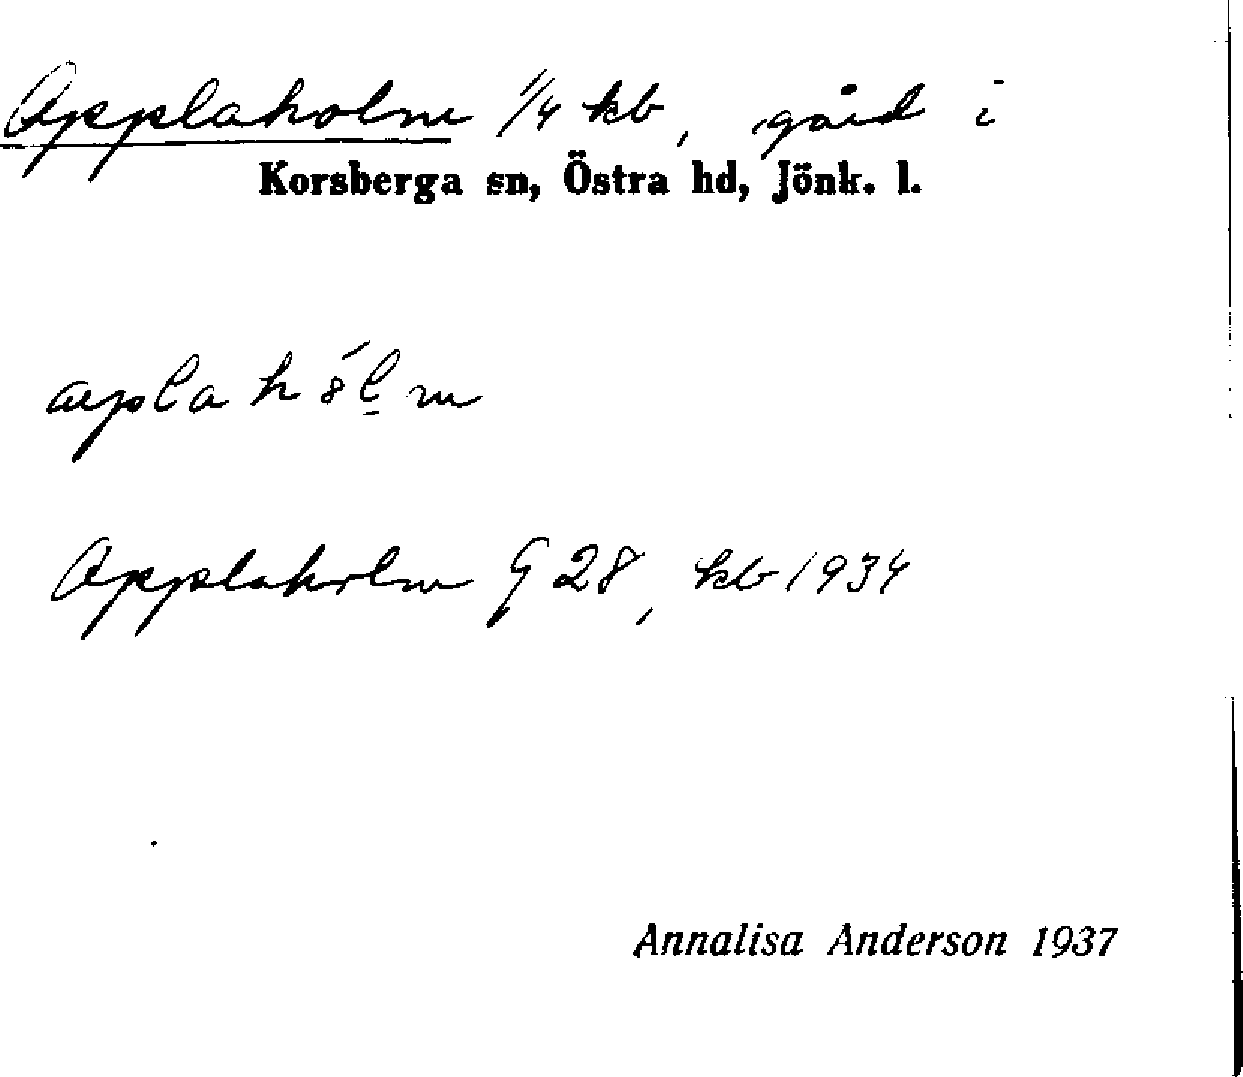 Applaholm 1/4 kb, gård i
Korsberga sn, Östra hd, Jönk. l.
Applaholm G 28, kb 1934
Annalisa Anderson 1937